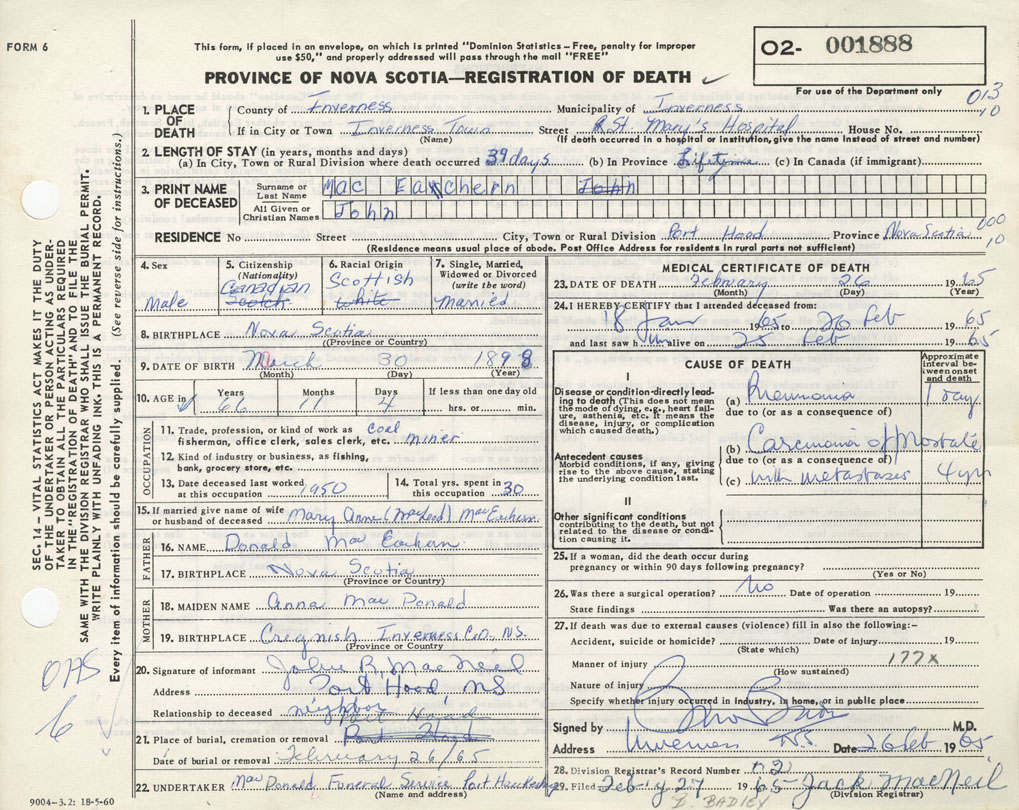 FORM 6
This form, if placed in an envelope, on which is printed "Dominion Statistics – Free, penalty for improper
use $50," and properly addressed will pass through the mail "FREE"
PROVINCE OF NOVA SCOTIA—REGISTRATION OF DEATH ✓
O2- 001888
For use of the Department only
013
10
1. PLACE OF DEATH
County of Inverness Municipality of Inverness
If in City or Town Inverness Town Street St Mary's Hospital House No.
(Name) (If death occurred in a hospital or institution, give the name instead of street and number)
2. LENGTH OF STAY (in years, months and days)
(a) In City, Town or Rural Division where death occurred 39 days (b) In Province Lifetime (c) In Canada (if immigrant)
3. PRINT NAME OF DECEASED
Surname or Last Name Mac Eachern John
All Given or Christian Names John
RESIDENCE No Street City, Town or Rural Division Port Hood Province Nova Scotia
(Residence means usual place of abode. Post Office Address for residents in rural parts not sufficient)
600
10
4. Sex
male
5. Citizenship
(Nationality)
Canadian
Scotch
6. Racial Origin
Scottish
white
7. Single, Married, Widowed or Divorced
(write the word)
married
8. BIRTHPLACE Nova Scotia
(Province or Country)
9. DATE OF BIRTH March 30 1898
(Month) (Day) (Year)
10. AGE in
Years 66
Months 11
Days 4
If less than one day old
hrs. or min.
OCCUPATION
11. Trade, profession, or kind of work as coal
fisherman, office clerk, sales clerk, etc. miner
12. Kind of industry or business, as fishing,
bank, grocery store, etc.
13. Date deceased last worked
at this occupation 1950
14. Total yrs. spent in
this occupation 30
15. If married give name of wife
or husband of deceased Mary Anne (MacLeod) MacEachern
FATHER
16. NAME Donald Mac Eachern
17. BIRTHPLACE Nova Scotia
(Province or Country)
MOTHER
18. MAIDEN NAME Anna MacDonald
19. BIRTHPLACE Cregnish Inverness Co., NS.
(Province or Country)
20. Signature of informant John R. MacNeil
Address Port Hood, NS
Relationship to deceased neighbor
Port Hood
21. Place of burial, cremation or removal Port Hood
Date of burial or removal February 26/65
22. UNDERTAKER MacDonald Funeral Service Port Hawkesbury
(Name and address)
MEDICAL CERTIFICATE OF DEATH
23. DATE OF DEATH February 26 1965
(Month) (Day) (Year)
24. I HEREBY CERTIFY that I attended deceased from:
18 Jan 1965 to 26 Feb 1965
and last saw him alive on 25 Feb 1965
CAUSE OF DEATH
Approximate interval between onset and death
I
Disease or condition directly leading to death (This does not mean the mode of dying, e.g., heart failure, asthenia, etc. It means the disease, injury, or complication which caused death.)
(a) Pneumonia 1 day
due to (or as a consequence of)
Antecedent causes
Morbid conditions, if any, giving rise to the above cause, stating the underlying condition last.
(b) Carcinoma of Prostate
due to (or as a consequence of)
(c) with metastases 4 yrs
II
Other significant conditions
contributing to the death, but not related to the disease or condition causing it.
25. If a woman, did the death occur during
pregnancy or within 90 days following pregnancy?
(Yes or No)
26. Was there a surgical operation? No Date of operation 19
State findings Was there an autopsy?
27. If death was due to external causes (violence) fill in also the following:–
Accident, suicide or homicide? Date of injury 19
(State which)
Manner of injury 177x
(How sustained)
Nature of injury
Specify whether injury occurred in industry, in home, or in public place
Signed by M.D.
Address Inverness NS. Date 26 Feb 1965
28. Division Registrar's Record Number
29. Filed Feb'y 27 1965 Jack MacNeil
(Division Registrar)
B. BADLEY
SEC. 14 – VITAL STATISTICS ACT MAKES IT THE DUTY
OF THE UNDERTAKER OR PERSON ACTING AS UNDER-
TAKER TO OBTAIN ALL THE PARTICULARS REQUIRED
IN THE "REGISTRATION OF DEATH" AND TO FILE THE
SAME WITH THE DIVISION REGISTRAR WHO SHALL ISSUE THE BURIAL PERMIT.
WRITE PLAINLY WITH UNFADING INK. THIS IS A PERMANENT RECORD.
Every item of information should be carefully supplied. (See reverse side for instructions.)
OAS
6
9004–3.2: 18-5-60